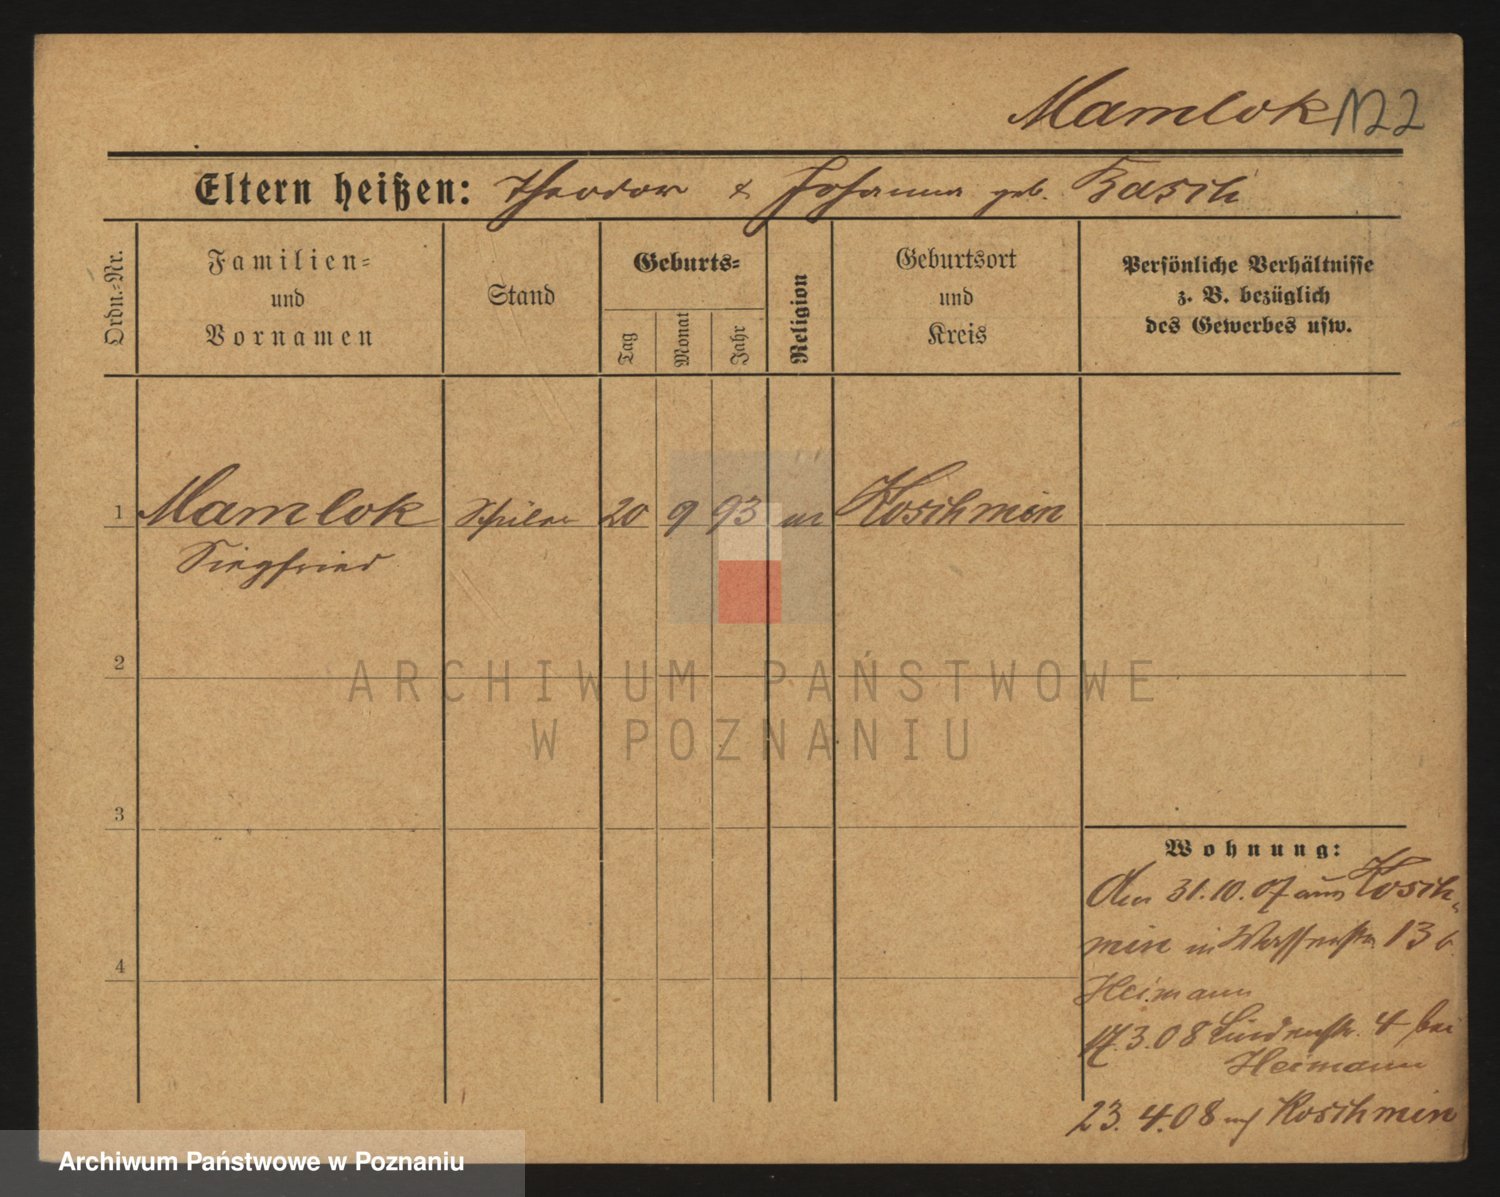 Mamlok 1722
Eltern heißen: Theodor & Johanna geb. Basch
Ordn.-Nr.
Familien-
und
Vornamen
Stand
Geburts-
Tag
Monat
Jahr
Religion
Geburtsort
und
Kreis
Persönliche Verhältnisse
z. B. bezüglich
des Gewerbes usw.
1 Mamlok Schüler 20 9 93 m Koschmin
Siegfried
2
3
4
ARCHIWUM PAŃSTWOWE
W POZNANIU
Wohnung:
Am 31.10.07 aus Kosch-
min in Wasserstr. 13 b
Heimann
17.3.08 Lindenstr. 4 bei
Heimann
23.4.08 nach Koschmin
Archiwum Państwowe w Poznaniu